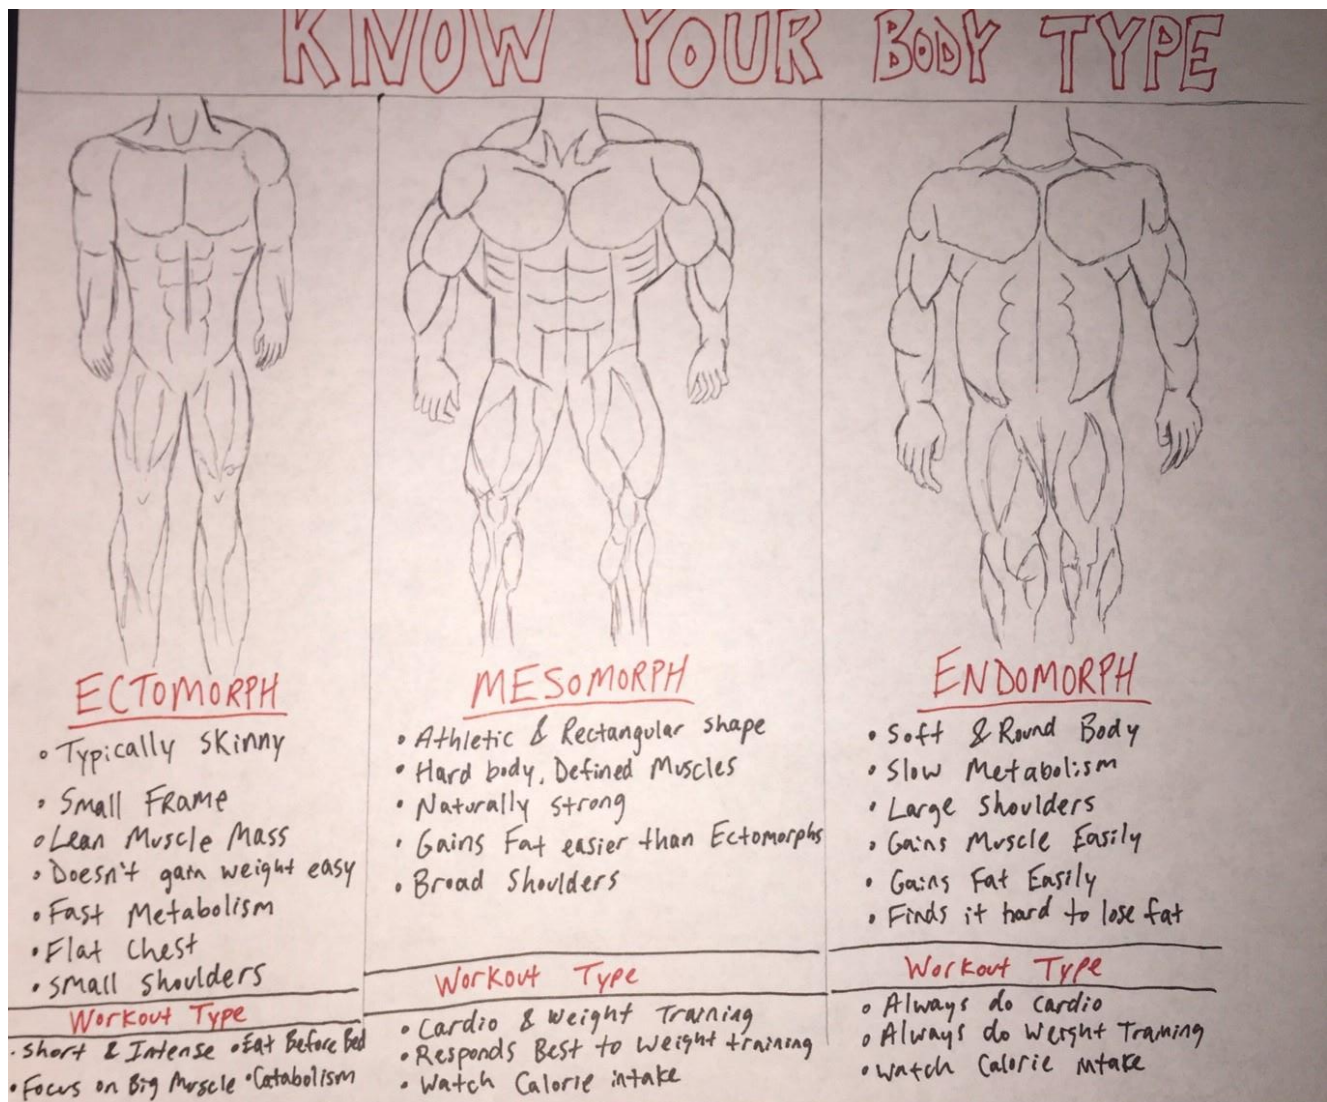 KNOW YOUR BODY TYPE
ECTOMORPH
• Typically Skinny
• Small Frame
• Lean Muscle Mass
• Doesn't gain weight easy
• Fast Metabolism
• Flat Chest
• Small Shoulders
Workout Type
• Short & Intense • Eat Before Bed
• Focus on Big Muscle • Catabolism
MESOMORPH
• Athletic & Rectangular shape
• Hard body, Defined Muscles
• Naturally strong
• Gains Fat easier than Ectomorphs
• Broad Shoulders
Workout Type
• Cardio & Weight Training
• Responds Best to Weight training
• Watch Calorie intake
ENDOMORPH
• Soft & Round Body
• Slow Metabolism
• Large Shoulders
• Gains Muscle Easily
• Gains Fat Easily
• Finds it hard to lose fat
Workout Type
• Always do cardio
• Always do Weight Training
• Watch Calorie intake